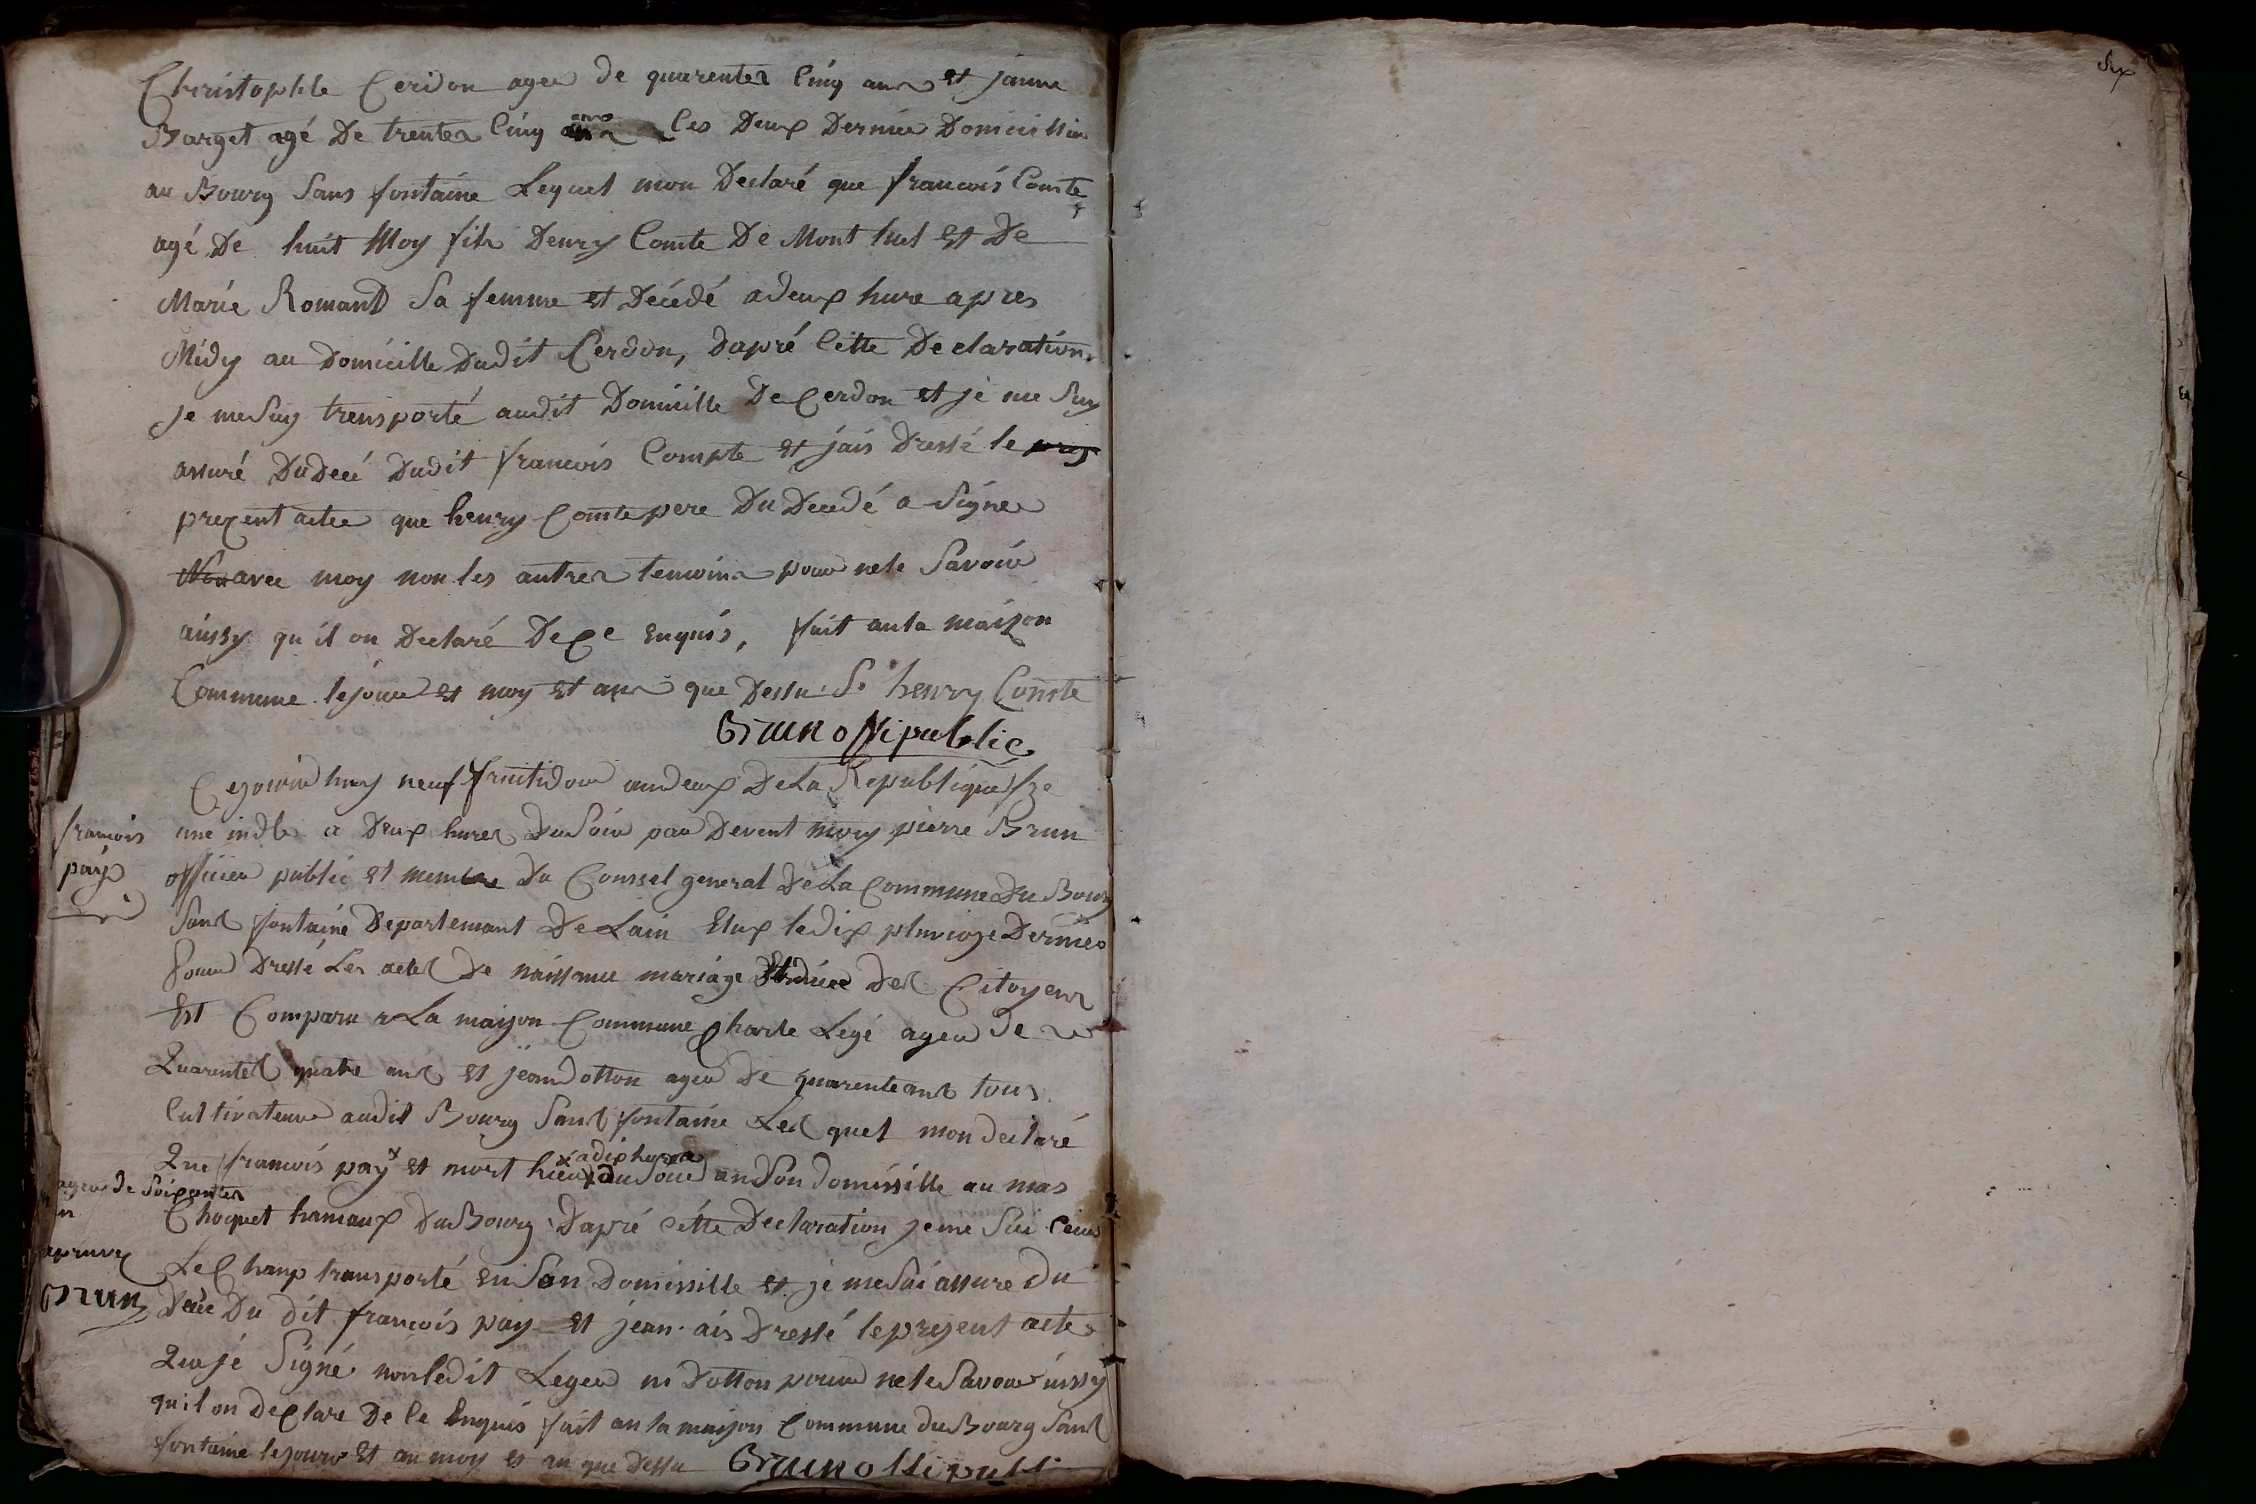 Christophle Ceridon agee de quarentes Cinq ans et janne
Barget agé De trentes Cinq ans Les Deux Dernier Domicillié
au Bourg Sans fontaine Lequel mon Declaré que francois Comte
agé De huit Moy fils Denry Comte De Mont luel Et De
Marie Romand Sa femme et Décédé a deux hure apres
Midy au Domicille Dudit Cerdon, Dapré Cette Declaration
Je me Suy trensporté audit Domicille De Cerdon et je me Suy
assuré Du Decé Dudit francois Compte et jais Dressé le
prezent actee que henry Comte pere Du Decedé a Signee
avec moy non les autres temoins pour ne le Savoir
aissy qu'il on Declaré De Ce Enquis, fait an la maizon
Commune le jour et moy et ans que Dessu. henry Comte
Brun offi public
Cejourdhuy neuf fruitidor an deux De La Republique
une indble a Deux hures Du Soir par Devent moy pierre Brun
officier public et membre Du Conssel general De La Commune Du Bourg
Sans fontaine Departemant De Lain Elux le dix pluvioze Dernier
Pour Dressé Les actes De naissance mariage Et deces Des Citoyens
Est Comparu a La maizon Commune Charle Legé agee De
Quarentes quatre ans et jean Dotton agee De quarente ans tous
Cultivateur audit Bourg Sans fontaine Les quel mon declaré
Que francois pay et mort hier
a dix hures
du Soire an Son domissille au mas
Choquet hamaux Du Bourg Dapré Cette Declaration je me Sui
Le Champ transporté En Son Domissille et je me Sui assure Du
Decee Du dit francois pay Et jean ais Dressé le prezent acte
Que jé Signé non ledit Leger ni Dotton pour ne le Savoir aissy
qu'il on declare De Ce Enquis fait an la maizon Commune du Bourg Sans
fontaine le jour Et an moy et an que Dessu Brun offi publi
francois
pay
agee de Soixantes
apruvé
Brun